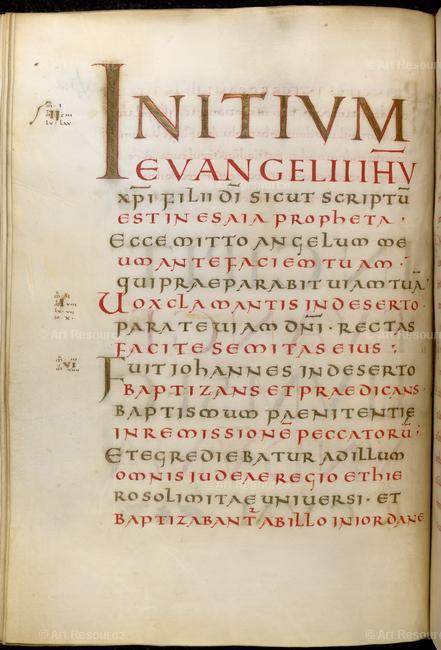 INITIVM
EVANGELII IHV
XPI FILII DI SICUT SCRIPTŪ
EST IN ESAIA PROPHETA ·
ECCE MITTO ANGELUM ME
UM ANTE FACIEM TUAM ·
QUI PRAEPARABIT UIAM TUĀ
UOX CLAMANTIS IN DESERTO ·
PARATE UIAM DNI · RECTAS
FACITE SEMITAS EIUS :
FUIT IOHANNES IN DESERTO
BAPTIZANS ET PRAEDICANS ·
BAPTISMUM PAENITENTIE
IN REMISSIONĒ PECCATORŪ :
ET EGREDIEBATUR AD ILLUM
OMNIS IUDEAE REGIO ET HIE
ROSOLIMITAE UNIUERSI · ET
BAPTIZABANT AB ILLO IN IORDANE
© Art Resource